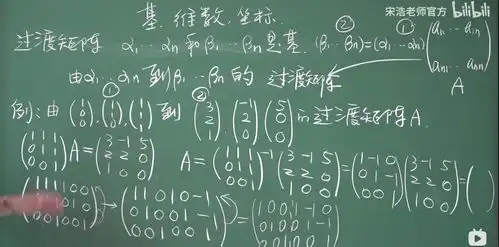 宋浩老师官方 bilibili
基、维数、坐标
过渡矩阵 α₁…αn 和 β₁…βn 是基. ② (β₁…βn)=(α₁…αn) ① (a₁₁ … a₁n; an₁ … ann)
由 α₁…αn 到 β₁…βn 的 过渡矩阵 A
例: 由 ① (1 0 0), (1 1 0), (1 1 1) 到 ② (3 2 1), (-1 2 0) (5 0 0) 的过渡矩阵A.
(1 1 1; 0 1 1; 0 0 1) A = (3 -1 5; 2 2 0; 1 0 0) A = (1 1 1; 0 1 1; 0 0 1)⁻¹ (3 -1 5; 2 2 0; 1 0 0) = (1 -1 0; 0 1 -1; 0 0 1) (3 -1 5; 2 2 0; 1 0 0) = ( )
(1 1 1 1 0 0; 0 1 0; 0 0 1 0 0 1) → (1 1 0 1 0 -1; 0 1 0 0 1 -1; 0 0 1 0 0 1) → (1 0 0 1 -1 0; 0 1 0 0 1 -1; 0 0 1 0 0 1)